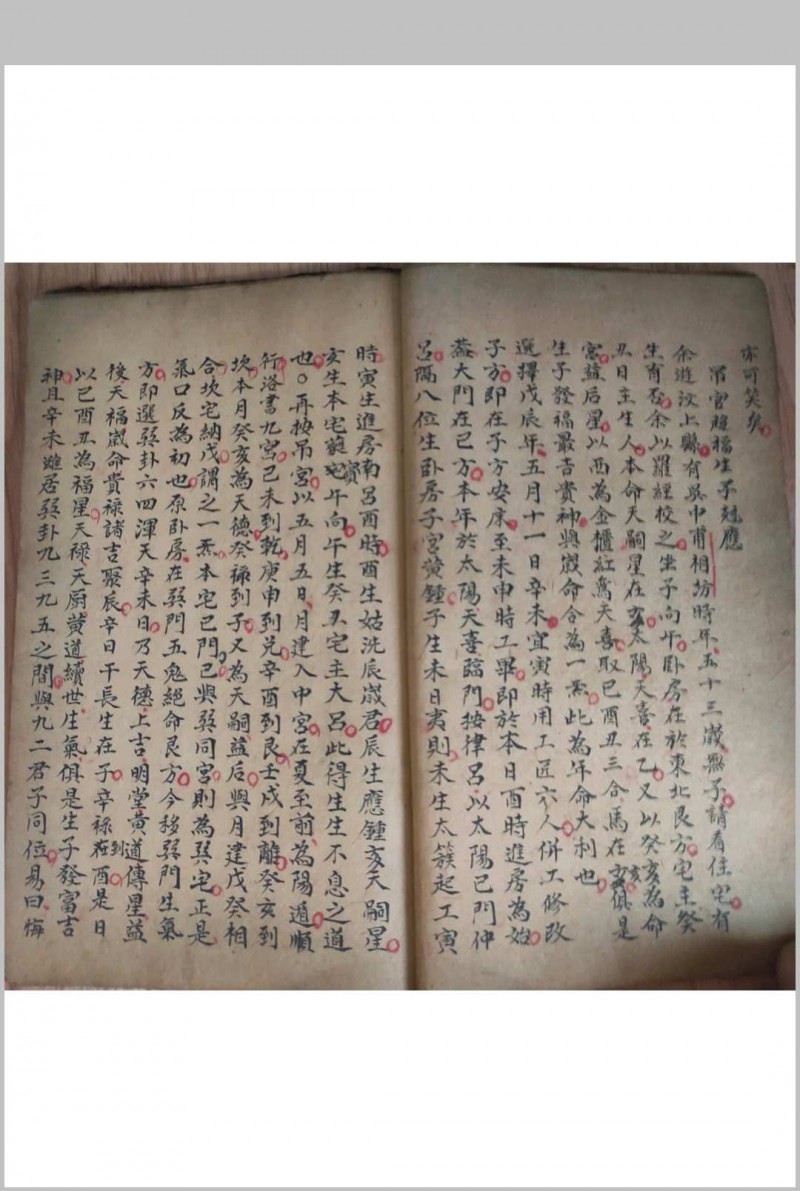 亦可笑矣
吊宮賜福生子尅應
余遊汶上縣有吳中甫相坊時年五十三歲無子請看住宅有
生育否余以羅經校之坐子向午卧房在於東北艮方宅主癸
丑日主生人本命天嗣星在亥太陽天喜在乙又以癸亥為命
宮益后星以西為金櫃紅鸞天喜取巳酉丑三合馬在亥俱是
生子發福最吉貴神與歲命合為一炁此為年命大利也
選擇戊辰年五月十一日辛未宜寅時用工匠六人併工修改
子方即在子方安床至未申時工畢即於本日酉時進房為始
蓋大門在巳方本年於太陽天喜臨門按律呂以太陽巳門仲
呂隔八位生卧房子宮黃鍾子生未日夷則未生太簇起工寅
時寅生進房南呂酉時酉生姑洗辰歲君辰生應鍾亥天嗣星
亥生本宅蕤賓午向午生癸丑宅主大呂此得生生不息之道
也○再按吊宮以五月五日月建入中宮在夏至前為陽遁順
行洛書九宮己未到乾庚申到兌辛酉到艮壬戌到離癸亥到
坎本月癸亥為天德癸祿到子又為天嗣益后與月建戊癸相
合坎宅納戊謂之一炁本宅巳門巳與巽同宮則為巽宅正是
氣口反為初也原卧房在巽門五鬼絕命艮方今移巽門生氣
方即選巽卦六四渾天辛未日乃天德上吉明堂黃道傳星益
後天福歲命貴祿諸吉聚辰辛日干長生在子辛祿到酉是日
以巳酉丑為福星天祿天厨黃道續世生氣俱是生子發富吉
神且辛未雖居巽卦九三九五之間與九二君子同位易曰悔